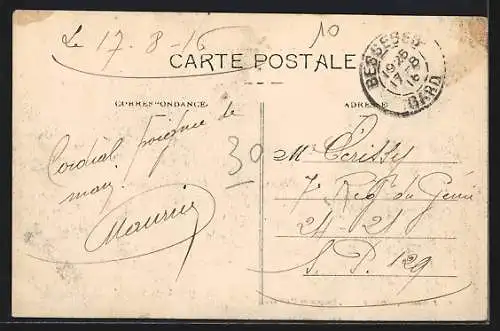 Le 17-8-16
10
CARTE POSTALE
BESSEGES
19 25
17-8
16
GARD
CORRESPONDANCE
ADRESSE
Cordial poignée de
main
Maurice
30
Mr Crissy
7e Reg du Génie
24-21
S. P. 129